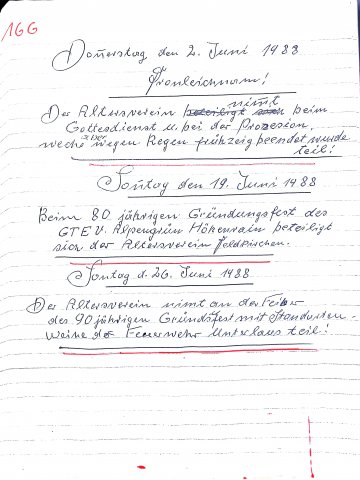 166
Donerstag den 2. Juni 1988
Fronleichnam!
Der Altersverein beteiligt sich nimt beim
Gottesdienst u. bei der Prozesion,
weche aber wegen Regen frühzeig beendet wurde
teil!
Sontag den 19. Juni 1988
Beim 80 jährigen Gründungsfest des
GTEV. Alpengrün Höhenrain beteiligt
sich der Altersverein Feldkirchen.
Sontag d. 26. Juni 1988
Der Altersverein nimt an der Feier
des 90 jährigen Gründsfest mit Standarten-
Weine der Feuerwehr Unterlaus teil!